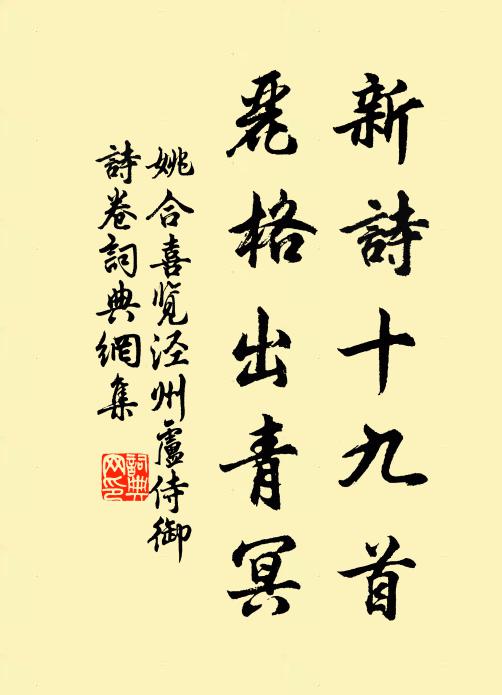 新詩十九首
麗格出青冥
姚合喜览泾州盧侍御
詩卷詞典網集
詞典网印